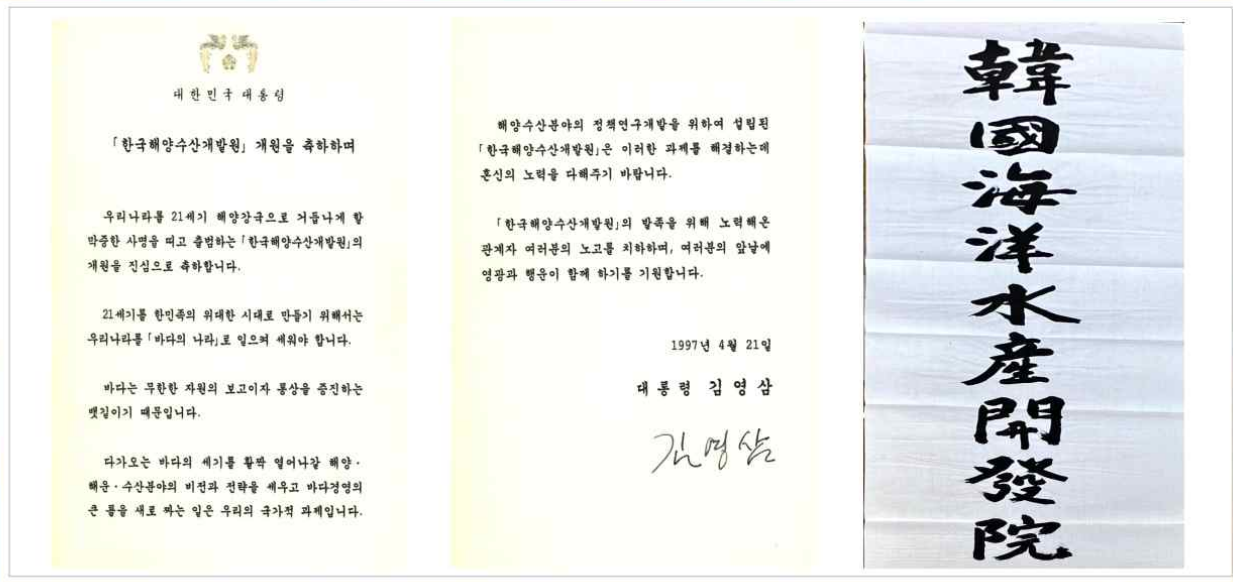 대한민국 대통령
「한국해양수산개발원」 개원을 축하하며
우리나라를 21세기 해양강국으로 거듭나게 할
막중한 사명을 띠고 출범하는 「한국해양수산개발원」의
개원을 진심으로 축하합니다.
21세기를 한민족의 위대한 시대로 만들기 위해서는
우리나라를 「바다의 나라」로 일으켜 세워야 합니다.
바다는 무한한 자원의 보고이자 통상을 증진하는
뱃길이기 때문입니다.
다가오는 바다의 세기를 활짝 열어나갈 해양·
해운·수산분야의 비전과 전략을 세우고 바다경영의
큰 틀을 새로 짜는 일은 우리의 국가적 과제입니다.
해양수산분야의 정책연구개발을 위하여 설립된
「한국해양수산개발원」은 이러한 과제를 해결하는데
혼신의 노력을 다해주기 바랍니다.
「한국해양수산개발원」의 발족을 위해 노력해온
관계자 여러분의 노고를 치하하며, 여러분의 앞날에
영광과 행운이 함께 하기를 기원합니다.
1997년 4월 21일
대통령 김영삼
김영삼
韓國海洋水産開發院